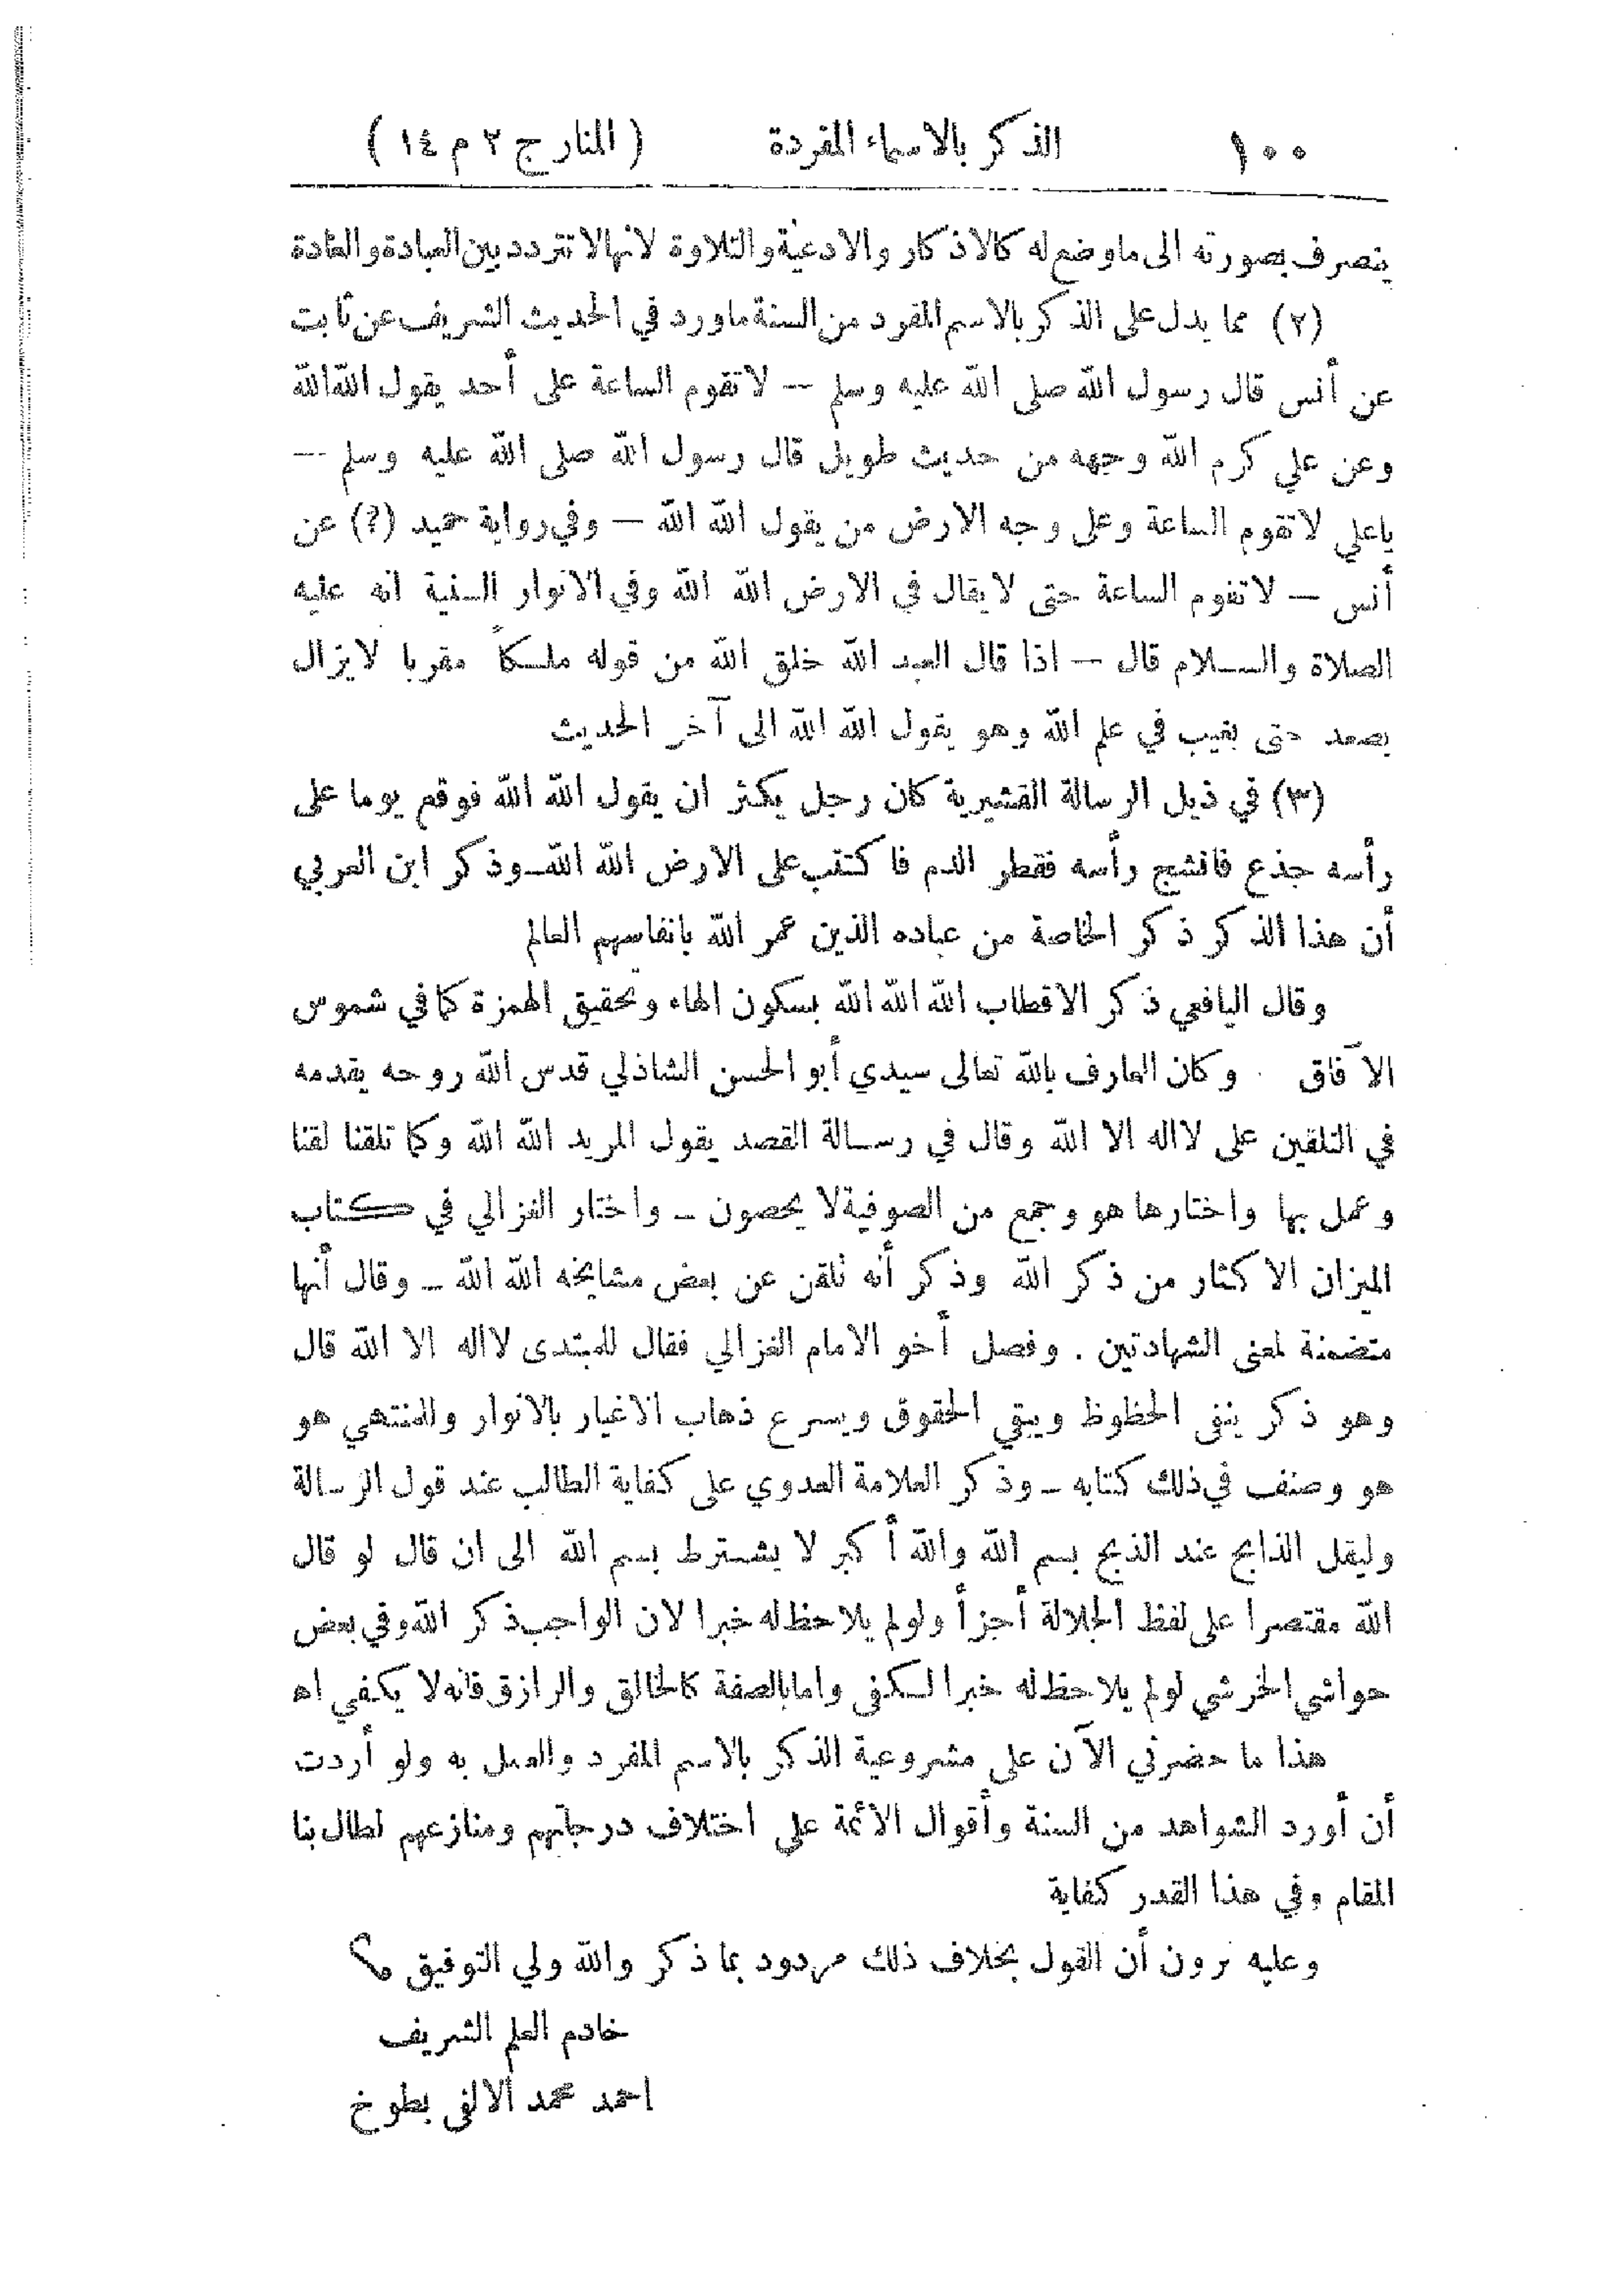 ١٠٠ الذكر بالاسماء المفردة (المنار ج ٢ م ١٤)
ينصرف بصورته الى ماوضع له كالاذكار والادعية والتلاوة لانها لا تتردد بين العبادة والعادة
(٢) مما يدل على الذكر بالاسم المفرد من السنة ماورد في الحديث الشريف عن ثابت
عن أنس قال رسول الله صلى الله عليه وسلم -- لا تقوم الساعة على أحد يقول الله الله
وعن علي كرم الله وجهه من حديث طويل قال رسول الله صلى الله عليه وسلم --
ياعلي لا تقوم الساعة وعلى وجه الارض من يقول الله الله — وفي رواية حميد (؟) عن
أنس — لا تقوم الساعة حتى لا يقال في الارض الله الله وفي الانوار السنية انه عليه
الصلاة والسلام قال — اذا قال العبد الله خلق الله من قوله ملكاً مقربا لا يزال
يصعد حتى يغيب في علم الله وهو يقول الله الله الى آخر الحديث
(٣) في ذيل الرسالة القشيرية كان رجل يكثر ان يقول الله الله فوقع يوما على
رأسه جذع فانشج رأسه فقطر الدم فاكتتب على الارض الله الله ـ وذكر ابن العربي
أن هذا الذكر ذكر الخاصة من عباده الذين عمر الله بانفاسهم العالم
وقال اليافعي ذكر الاقطاب الله الله الله بسكون الهاء وتحقيق الهمزة كما في شموس
الآفاق . وكان العارف بالله تعالى سيدي أبو الحسن الشاذلي قدس الله روحه يقدمه
في التلقين على لا اله الا الله وقال في رسالة القصد يقول المريد الله الله وكما تلقنا لقنا
وعمل بها واختارها هو وجمع من الصوفية لا يحصون ـ واختار الغزالي في كتاب
الميزان الاكثار من ذكر الله وذكر أنه تلقن عن بعض مشايخه الله الله ـ وقال أنها
متضمنة لمعنى الشهادتين . وفصل أخو الامام الغزالي فقال للمبتدى لا اله الا الله قال
وهو ذكر ينفى الحظوظ ويبقي الحقوق ويسرع ذهاب الاغيار بالانوار وللمنتهي هو
هو وصنف في ذلك كتابه ـ وذكر العلامة العدوي على كفاية الطالب عند قول الرسالة
وليقل الذابح عند الذبح بسم الله والله أكبر لا يشترط بسم الله الى ان قال لو قال
الله مقتصرا على لفظ الجلالة أجزأ ولو لم يلاحظ له خبرا لان الواجب ذكر الله وفي بعض
حواشي الخرشي لو لم يلاحظ له خبرا لكفى واما بالصفة كالخالق والرازق فانه لا يكفي اه
هذا ما حضرني الآن على مشروعية الذكر بالاسم المفرد والعمل به ولو أردت
أن أورد الشواهد من السنة وأقوال الأئمة على اختلاف درجاتهم ومنازعهم لطال بنا
المقام وفي هذا القدر كفاية
وعليه ترون أن القول بخلاف ذلك مردود بما ذكر والله ولي التوفيق
خادم العلم الشريف
احمد محمد الالفى بطوخ